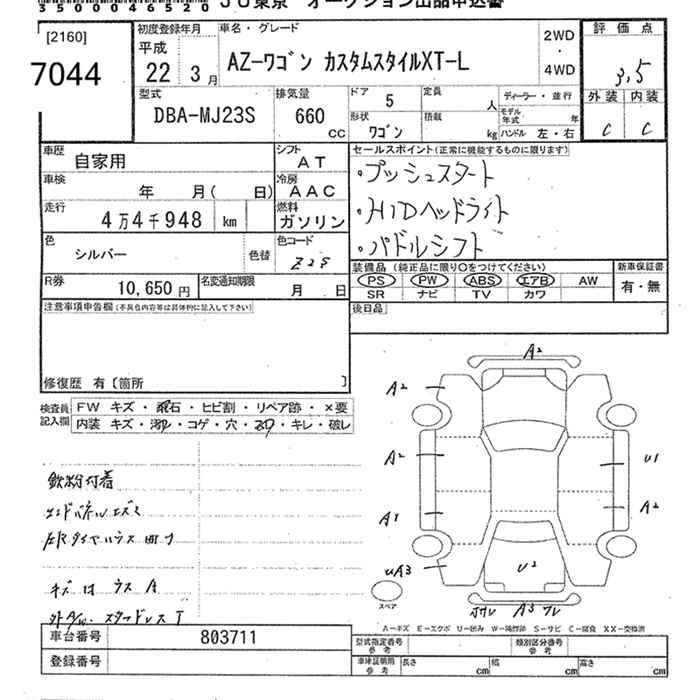 350004 6520 JU東京 オークション出品申込書
[2160]
7044
初度登録年月
平成
22 3 月
車名・グレード
AZ-ワゴン カスタムスタイルXT-L
2WD
・
4WD
評価点
3,5
外装 内装
C C
型式
DBA-MJ23S
排気量
660
CC
ドア 5
形状
ワゴン
定員
人
積載
kg
ディーラー・並行
モデル年式 年
ハンドル 左・右
車歴
自家用
シフト
AT
車検
年 月( 日)
冷房
AAC
走行
4万4千948 km
燃料
ガソリン
色
シルバー
色替
色コード
Z2S
R券
10,650 円
名変通知期限
月 日
セールスポイント(正常に機能するものに限ります)
・プッシュスタート
・HIDヘッドライト
・パドルシフト
装備品(純正品に限り○をつけてください)
PS PW ABS エアB AW
SR ナビ TV カワ
新車保証書
有・無
後日品
注意事項申告欄(不具合内容等は具体的に記入して下さい)
修復歴 有〔箇所 〕
検査員記入欄
FW キズ・飛石・ヒビ割・リペア跡・×要
内装 キズ・汚れ・コゲ・穴・スレ・キレ・破レ
鉄粉付着
エンドパネルユガミ
左Rタイヤハウス凹ワ
キズ ウス A
外A/W.スタッドレスT
車台番号 803711
登録番号
A2
A2
A2
A1
UA3
U1
A2
U2
A3
スペア
A-キズ E-エクボ U-凹み W-補修跡 S-サビ C-腐食 XX-交換済
型式指定番号
参考
類別区分番号
参考
車庫証明用
参考
長さ cm
幅 cm
高さ cm